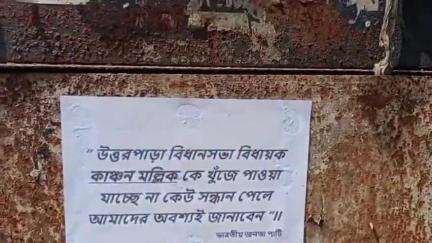 “ উত্তরপাড়া বিধানসভা বিধায়ক
কাঞ্চন মল্লিক কে খুঁজে পাওয়া
যাচ্ছে না কেউ সন্ধান পেলে
আমাদের অবশ্যই জানাবেন ”॥
ভারতীয় জনতা পার্টি